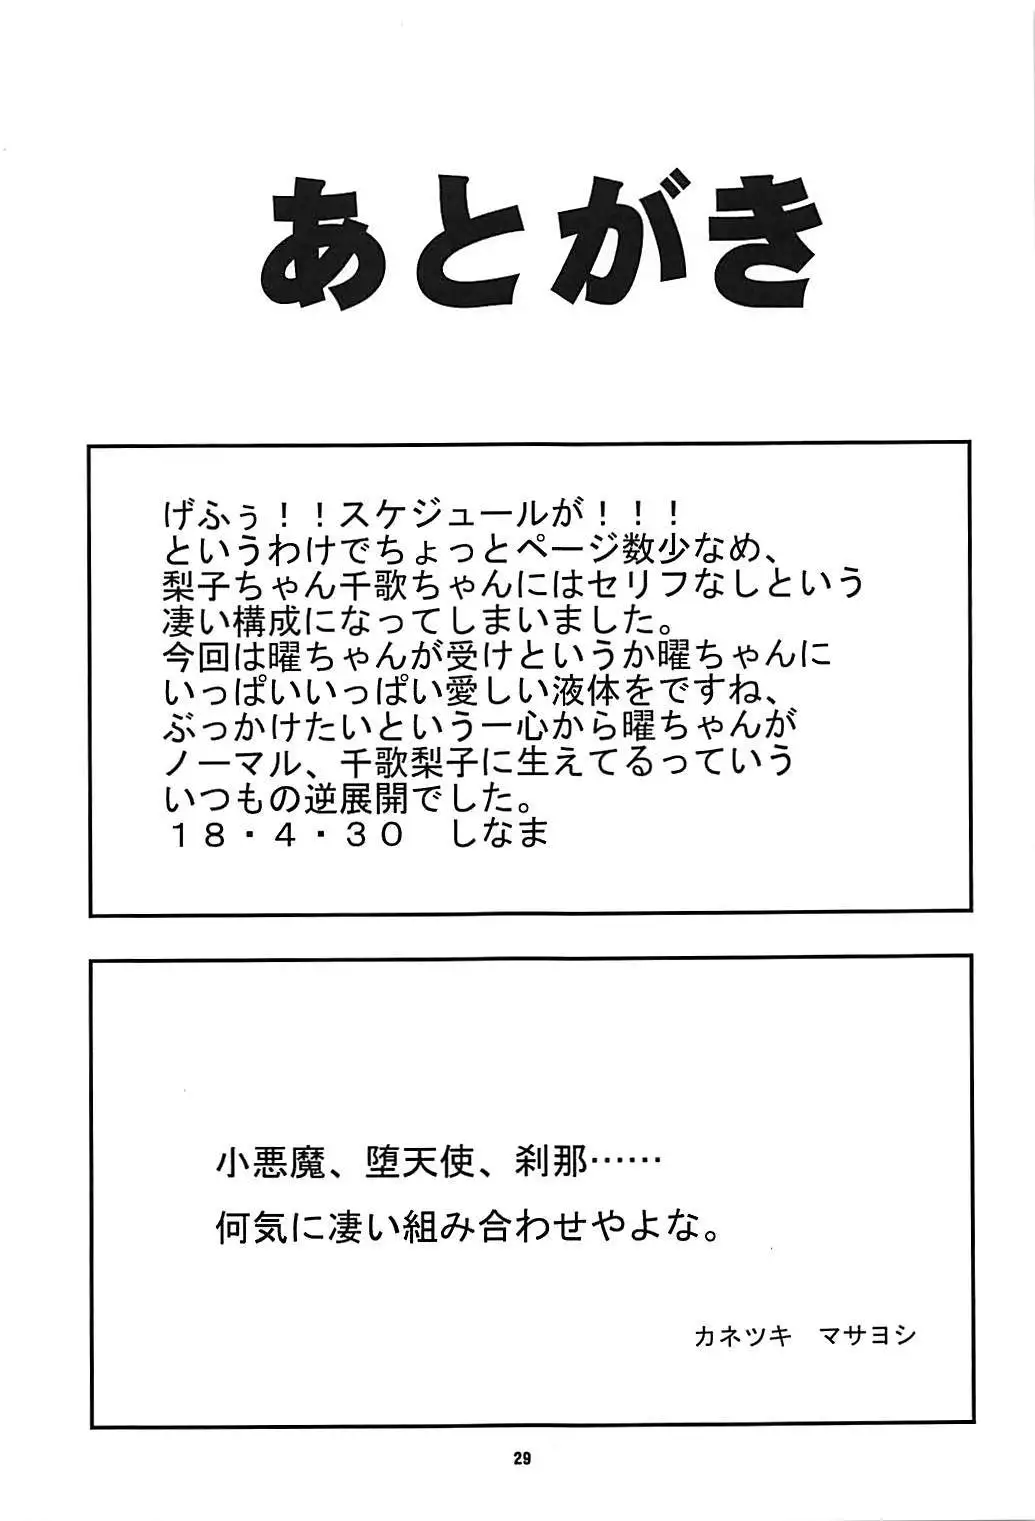 あとがき
げふぅ！！スケジュールが！！！
というわけでちょっとページ数少なめ、
梨子ちゃん千歌ちゃんにはセリフなしという
凄い構成になってしまいました。
今回は曜ちゃんが受けというか曜ちゃんに
いっぱいいっぱい愛しい液体をですね、
ぶっかけたいという一心から曜ちゃんが
ノーマル、千歌梨子に生えてるっていう
いつもの逆展開でした。
１８・４・３０　しなま
小悪魔、堕天使、刹那……
何気に凄い組み合わせやよな。
カネツキ　マサヨシ
29